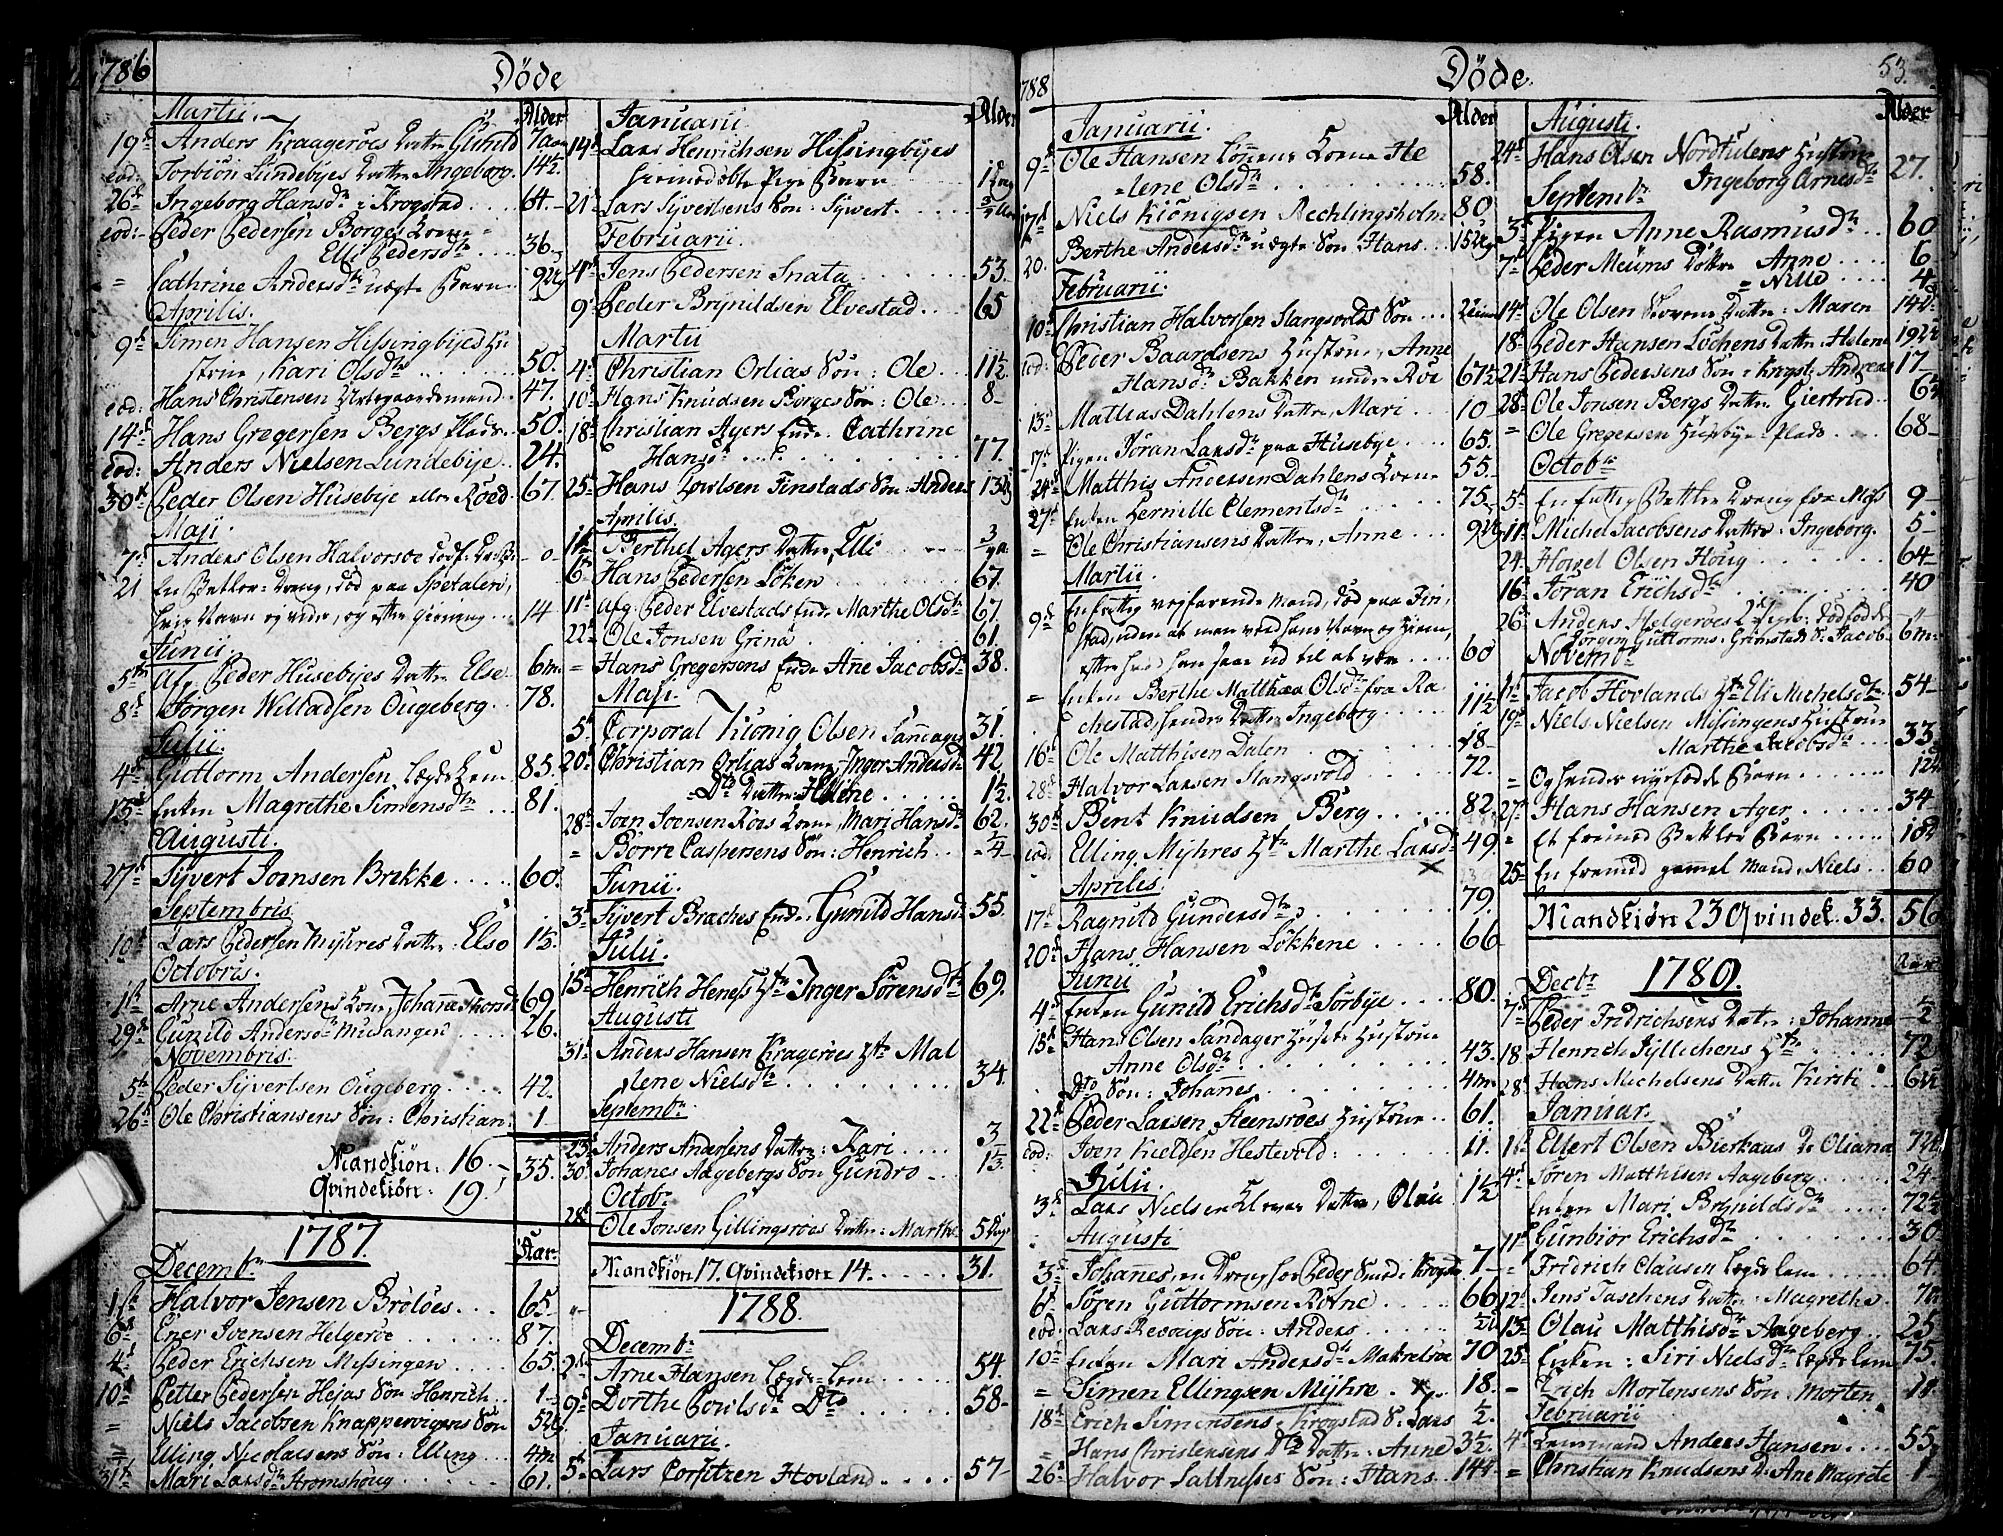 1786
Döde
Martii.
Alder
19d Anders Kraageröes Datter Gunild 7 aar
eod: Torbiön Lundebyes Datter Angeborg. 14½
26d Ingeborg Hansdr: Krogstad 64.
eod: Peder Pedersen Borges Kone
Elli Pedersdr 36
= Cathrine Andersdr uægte Barn 9 Ug
Aprilis.
9d Simen Hansen Hissingbyes Hu
strue, Kari Olsdtr 50.
eod: Hans Christensen 47.
14d Hans Gregersen Bergs Plads 50.
eod: Anders Nielsen Lundebye 24.
30d Peder Olsen Husebye eller Röed 67.
Maji
7d Anders Olsen Halvorsröe dödf. Datter -0-
21 En Betler-Dreng, död paa Spetalen,
hvis Navn ey vides, og efter Gisning 14
Junii
5te Afg. Peder Husebyes Datter Else 6m
8d Jörgen Willadsen Ougeberg 78.
Julii.
4d Guttorm Andersen Lægdslem 85.
15d Enken Magrethe Simensdtr 81.
Augusti.
27d Syvert Joensen Brekke 60.
Septembris
10d Lars Pedersen Myhres Datter: Else 1½
Octobris.
1ste Arne Andersens Kone, Johanne Thorsdr 69
29d Gunild Andersdr Missingen 26.
Novembris.
5te Peder Syvertsen Ougeberg 42.
26d Ole Christiansens Sön: Christian 1
Mandkiön: 16.
Qvindekiön: 19. 35.
1787.
Aar
Decembr
1ste Halvor Jensen Bröloes 65.
6d Ener Joensen Helgeröe 87.
4d Peder Erichsen Missingen 65.
10d Petter Pedersen Hejas Sön Henrich 1
= Niels Jacobsen Knappervigens Sön 5 Ug
= Elling Nicolaisens Sön: Elling 4m
31te Mari Larsdtr Stromshoug 61.
Januarii
Alder
14d Lars Henrichsen Hissingbyes
hiemedöbte Pige Barn 1 Dag
21 Lars Syvertsens Sön: Sywert.
Februarii
4d Jens Pedersen Snata 53.
9 Peder Brynildsen Elvestad 65
Martii
4d Christian Orlias Sön: Ole 11½
10d Hans Knudsen Borges Sön: Ole 8
18d Christian Agers Enke Cathrine
Hansdr 77.
25d Hans Povlsen Finstads Sön: Anders 13
Aprilis.
1ste Berthel Agers Datter, Elli
6te Hans Pedersen Löken 67.
11te Afg. Peder Elvestads Enke Marthe Olsdtr 67
22d Ole Jonsen Grina 61.
= Hans Gregersens Enke Ane Jacobsdr 38.
Maji.
5te Corporal Kiönig Olsen 31.
20d Christian Orlias Kone Inger Andersdr 42
= Do Datter: Helene 1½.
28d Joen Svensen Röes Kone, Mari Hansdr 62.
= Börre Caspersens Sön: Henrich ¼
Junii.
3d Syvert Braches Enke, Gunild Hansdr 55.
Julii.
15d Henrich Heness Hst. Inger Sörensdtr 69.
Augusti
31te Anders Hansen Krageröes Hst. Mal
lene Nielsdtr 34.
Septembr
23d Anders Andersens Datter: Kari 3
30. Johanes Aagebergs Sön Gundro
Octobr
28d Ole Jonsen Gillingsröes Datter: Marthe 5 Dage
Mandkiön 17. Qvindekiön 14. 31.
1788.
Decembr
2d Arne Hansen Lægdslem 54.
9d Dorthe Povlsdtr Do 58.
Januarii.
5te Lars Corfitzen Hovland 57
1788
Döde.
53.
Januarii.
Alder
9d Ole Hansen Kone He
lene Olsdr 58.
17d Niels Kiönigsen Rechlingsholm 80
20. Berthe Andersdtr uægte Sön Hans 15 Ug
Februarii.
10d Christian Halvorsen Slangsvolds Sön 2 timer
eod: Peder Baardsens Hustrue, Anne
Hansdr Bakken under Röe 67½
13d Mathias Dahlens Datter, Mari 10
17d Pigen Jöran Larsdr paa Husebye 65.
24d Matthis Andersen Dahlens Kone 55.
27d Enken Pernille Clementsdr 75
= Ole Christiansens Datter, Anne 9 Ug
Martii.
9d En fattig vejfarende Mand, död paa Fin
stad, uden at man veed hans Navn og Hiem,
efter hvad han saae ud til at være 60
= Enken Berthe Matthæa Olsdtr fra Ra
chestad, hendes Datter Ingeborg 11½
16d Ole Matthisen Dalen 18
28d Halvor Larsen Slangsvold 72.
30d Bent Knudsen Berg 82
eod: Elling Myhres Hst. Marthe Larsdr 49.
Aprilis.
17d Ragnild Gundersdtr 79.
20d Hans Hansen Lökkene 66
Junii
4d Enken Gunild Erichsdtr Sörbye 80.
15d Hans Olsen Sandager Husets Hustrue
Anne Olsdr 43.
Do Sön: Johanes 4m
22d Peder Larsen Steensröes Hustrue 61.
eod: Joen Kieldsen Hestevold 11.
Julii.
3d Lars Nielsen Datter, Olau 1½
Augusti
3d Johannes, en Dreng hos Peder Smed: Krogstad 7
6te Sören Guttormsen Rörne 66
eod: Lars Revougs Sön: Anders
10d Enken Mari Andersdr Makrelröe 70
= Simen Ellingsen Myhre 18.
18d Erich Simensens: Krogstad S. Lars ½.
= Hans Christensens Do Datter: Anne 3½.
26d Halvor Saltness Sön: Hans 14
Augusti.
Alder
24d Hans Olsen Nordtulens Hustrue
Ingeborg Arnesdtr 27.
Septembr
3d Pigen Anne Rasmusdtr 60
7d Peder Meums Döttre Anne 6
= Nille 4
14d Ole Olsen Datter: Maren
18 Peder Hansen Löchens Datter: Helene 19
21d Hans Pedersens Sön: Krogst. Andreas 17
28d Ole Jonsen Bergs Datter: Giertrud
= Ole Gregersen Husebye-Plads 68
Octobr
5te En fattig Betler Dreng fra Moss 9
11 Michel Jacobsens Datter: Ingeborg. 5
24. Hovel Olsen Houg 64
16d Jöran Erichsdtr 40
26d Anders Helgeröes
Jörgen Guttorms: Grimstad S: Jacob 6m
Novembr
Jacob Hovlands Hst. Eli Michelsdtr 54
19d Niels Nielsen Missingens Hustrue
Marthe Jacobsdtr 33
= Og hendes nyefödde Barn
27d Hans Hansen Ager 34
= Et fremmed Betler Barn
25d En fremmed gammel Mand, Niels 60
Mandkiön 23 Qvindek: 33. 56
1789.
Aar
Decbr
7d Peder Fridrichsens Datter: Johanne ½
18. Henrich Jyllichens Hst. 72
28d Hans Michelsens Datter Kirsti
Januar.
1ste Ellert Olsen Bierkaas D: Oliana
4d Sören Matthisen Aageberg 24
Enken Mari Brynildsdtr 72½
11te Gunbiör Erichsdtr 30
= Fridrich Clausen Lægdslem 64
12d Jens Taschens Datter: Magrethe
13d Olau Matthisdr Aageberg 25
25d Enken: Siri Nielsdtr Lægdslem 75.
= Erich Mortensens Sön: Morten
Februarii
4d Lensmand Anders Hansen 55
= Christian Knudsens D: Ane Magrete 1